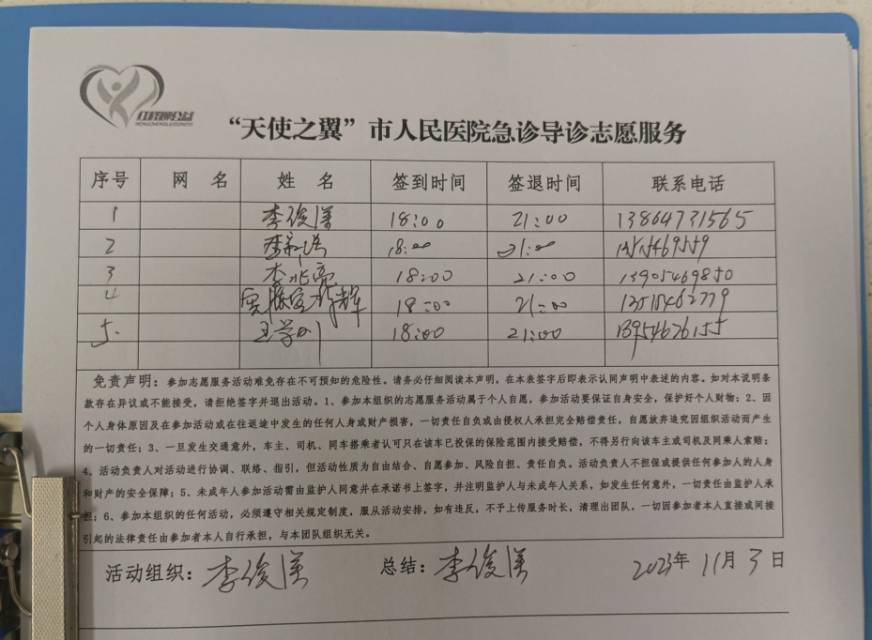 “天使之翼”市人民医院急诊导诊志愿服务
序号 网 名 姓 名 签到时间 签退时间 联系电话
1 李俊 18:00 21:00 13864731565
2 李 18:00 21:00
3 李兆亮 18:00 21:00 13905469850
4 18:00 21:00
5. 王学 18:00 21:00 13954676155
免责声明：参加志愿服务活动难免存在不可预知的危险性。请务必仔细阅读本声明，在本表签字后即表示认同声明中表述的内容。如对本说明条
款存在异议或不能接受，请拒绝签字并退出活动。1、参加本组织的志愿服务活动属于个人自愿。参加活动要保证自身安全，保护好个人财物；2、因
个人身体原因及在参加活动或在往返途中发生的任何人身或财产损害，一切责任自负或由侵权人承担完全赔偿责任，自愿放弃追究因组织活动而产生
的一切责任；3、一旦发生交通意外，车主、司机、同车搭乘者认可只在该车已投保的保险范围内接受赔偿，不得另行向该车主或司机及同乘人索赔；
4、活动负责人对活动进行协调、联络、指引，但活动性质为自由结合、自愿参加、风险自担、责任自负。活动负责人不担保或提供任何参加人的人身
和财产的安全保障；5、未成年人参加活动需由监护人同意并在承诺书上签字，并注明监护人与未成年人关系，如发生任何意外，一切责任由监护人承
担；6、参加本组织的任何活动，必须遵守相关规定制度，服从活动安排，如有违反，不予上传服务时长，清理出团队，一切因参加者本人直接或间接
引起的法律责任由参加者本人自行承担，与本团队组织无关。
活动组织：李俊 总结：李俊 2023年 11月 3日